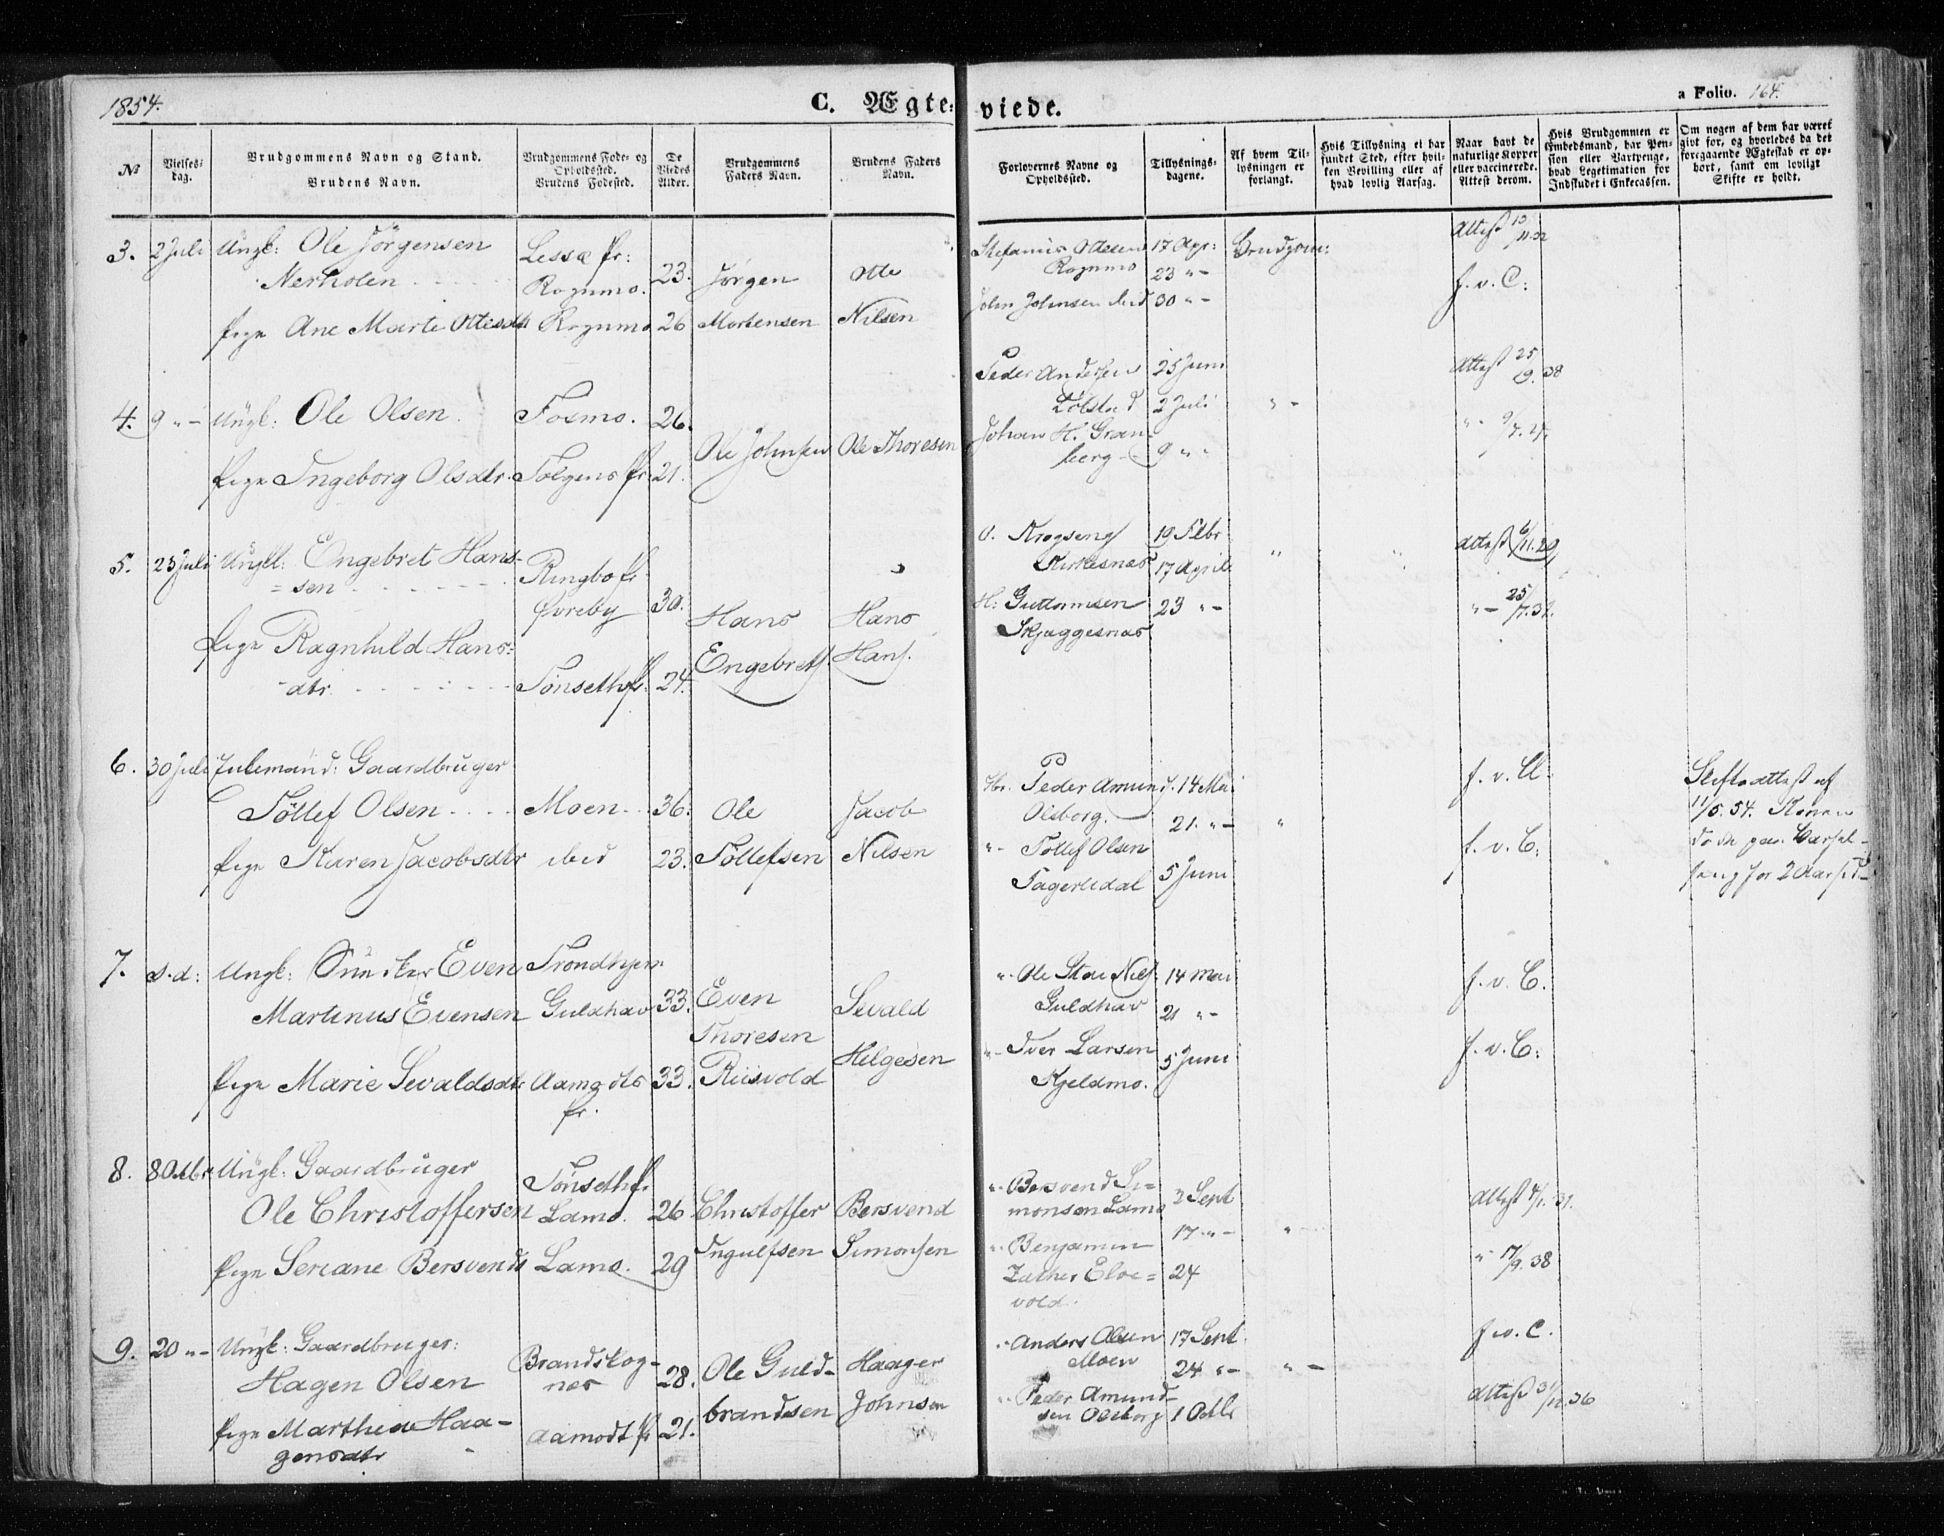 1854.
C. Ægteviede.
a Folio. 164.
No
Vielsesdag.
Brudgommens Navn og Stand.
Brudens Navn.
Brudgommens Føde- og Opholdssted.
Brudens Fødested.
De Viedes Alder.
Brudgommens Faders Navn.
Brudens Faders Navn.
Forlovernes Navne og Opholdssted.
Tillysningsdagene.
Af hvem Tillysningen er forlangt.
Hvis Tillysning ei har fundet Sted, efter hvilken Bevilling eller af hvad lovlig Aarsag.
Naar havt de naturlige Kopper eller vaccinerede. Attest derom.
Hvis Brudgommen er Embedsmand, har Pension eller Vartpenge, hvad Legitimation for Indskudet i Enkecassen.
Om nogen af dem har været givt før, og hvorledes da det foregaaende Ægteskab er ophørt, samt om lovligt Skifte er holdt.
3. 2 Juli Ungk: Ole Jörgensen Lessø Pr: 23. Jörgen Otte
Nerholen Rognmo.
Pige Ane Marte Ottesdtr Rognmo 26 Mortensen Nilsen
Stefanus Ottesen 17 Apr: Brudgom:
Rognmo 23 " -
John Johnsen ibid 30 " -
Attest
f. v. C:
4. 9 " - Ungk: Ole Olsen. Fosmo. 26.
Ole Johnsen Ole Thoresen
Pige Ingeborg Olsdtr. Tolgens Pr: 21.
Peder Andersen 25 Juni
Tolstad 2 Juli " -
Johan H. Gran-
berg - 9 " "
Attest 25/9. 38
5. 23 Juli Ungk: Engebret Hans-
= sen Ringbo Pr:
Øvreby 30. Hans Hans
Pige Ragnhild Hans-
dtr. Tönseth Pr: 24. Engebrets. Hans.
O. Krogseng 19 Febr
Kirkesnæs 17 April
H: Guttormsen 23 " -
Skjæggesnæs
Attest 6/11. 29
" - 25/7. 31.
6. 30 Juli Enkemand: Gaardbruger
Töllef Olsen Moen 36. Ole Jacob
Pige Karen Jacobsdtr ibid 23. Töllefsen Nilsen
Hr. Peder Amund 14 Mai
Olsborg. 21. " - "
" - Töllef Olsen
Fagerlidal 5 Juni
f. v. C:
f. v. C:
Skifteattest af
11/5. 54. Konen
döde paa Barsel-
seng for 2 Aar sid-
7. s. d: Ungk: Even Trondhjem
Martinus Evensen Guldhav 33. Even Sevald
Thoresen
Pige Marie Sevaldsdtr Aamodts 33. Riisvold Helgesen
Pr.
" Ole Nils. 14 Mai
Guldhav 21 " -
" - Iver Larsen 5 Juni
Kjeldmo.
f. v. C.
f. v. C:
8. 8 Octbr Ungk: Gaardbruger Tönseth Pr.
Ole Christoffersen Lamo. 26 Christoffer Bersvend
Pige Seriane Bersvends Lamo. 29 Ingulfsen Simonsen
" Bersvend Si=
monsen Lamo 3 Sept
" Benjamin 17 " - "
Elve= 24
vold.
Attest 4/1. 31.
" 17/9. 38
9. 20 " - Ungk: Gaardbruger:
Hagen Olsen Brandskog-
næs 28. Ole Guld- Haager
Pige Marthea Haa-
gensdtr Aamodt Pr 21. brandsen Johnsen
" Anders Olsen 17 Sept.
Moen 24 " - " -
" Peder Amund-
sen Olsborg 1 Octbr
f. v. C.
Attest 31/12 36